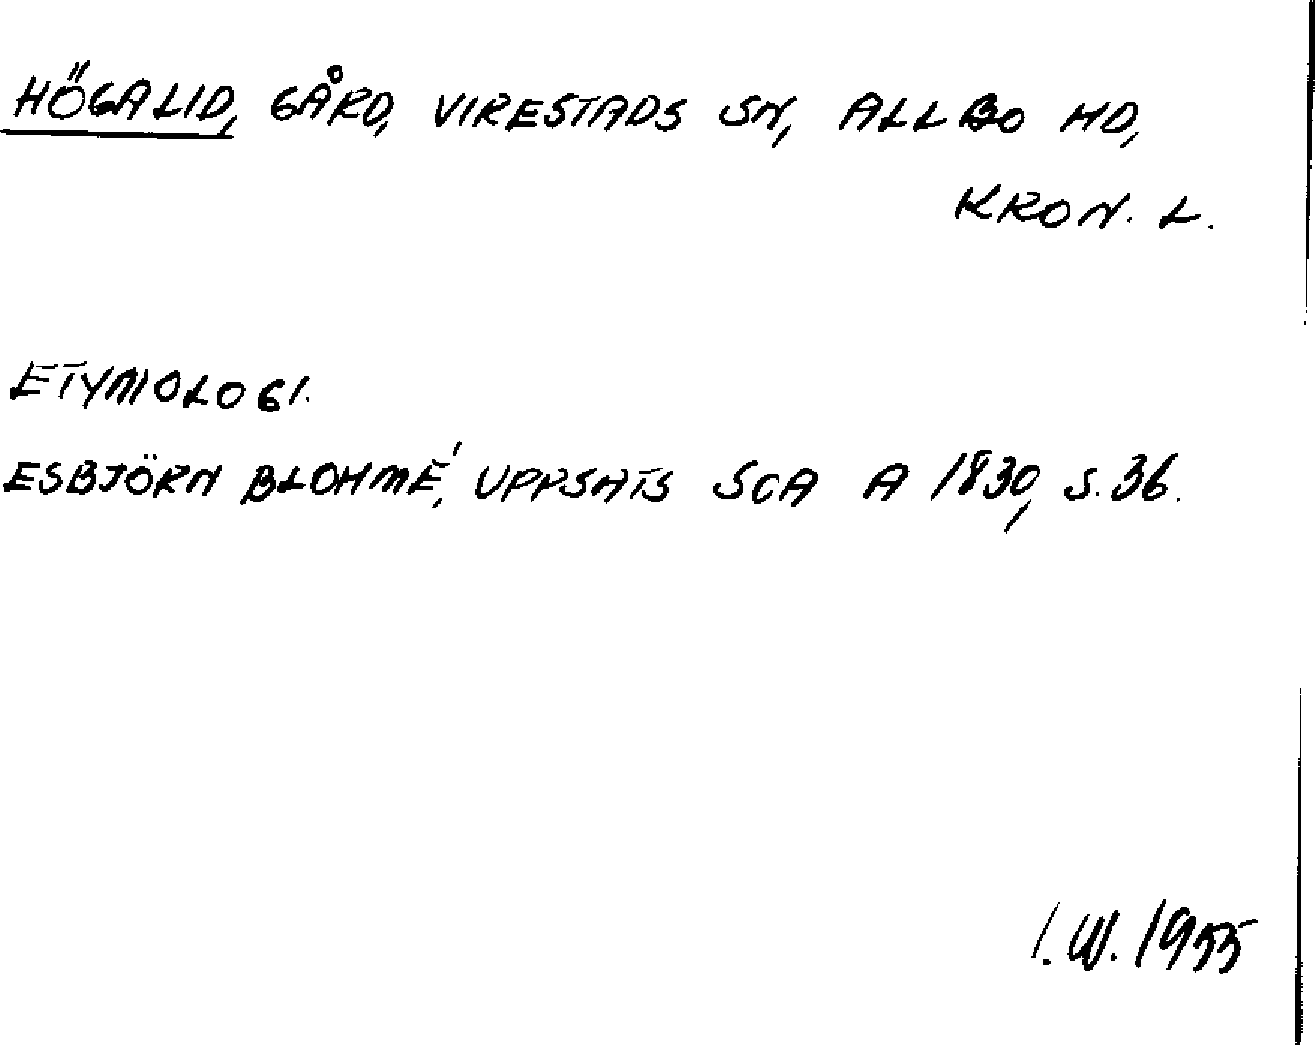 HÖGALID, GÅRD, VIRESTADS SN, ALLBO HD,
KRON. L.
ETYMOLOGI.
ESBJÖRN BLOHMÉ, UPPSATS SOA A 1830, S. 36.
I.W. 1955